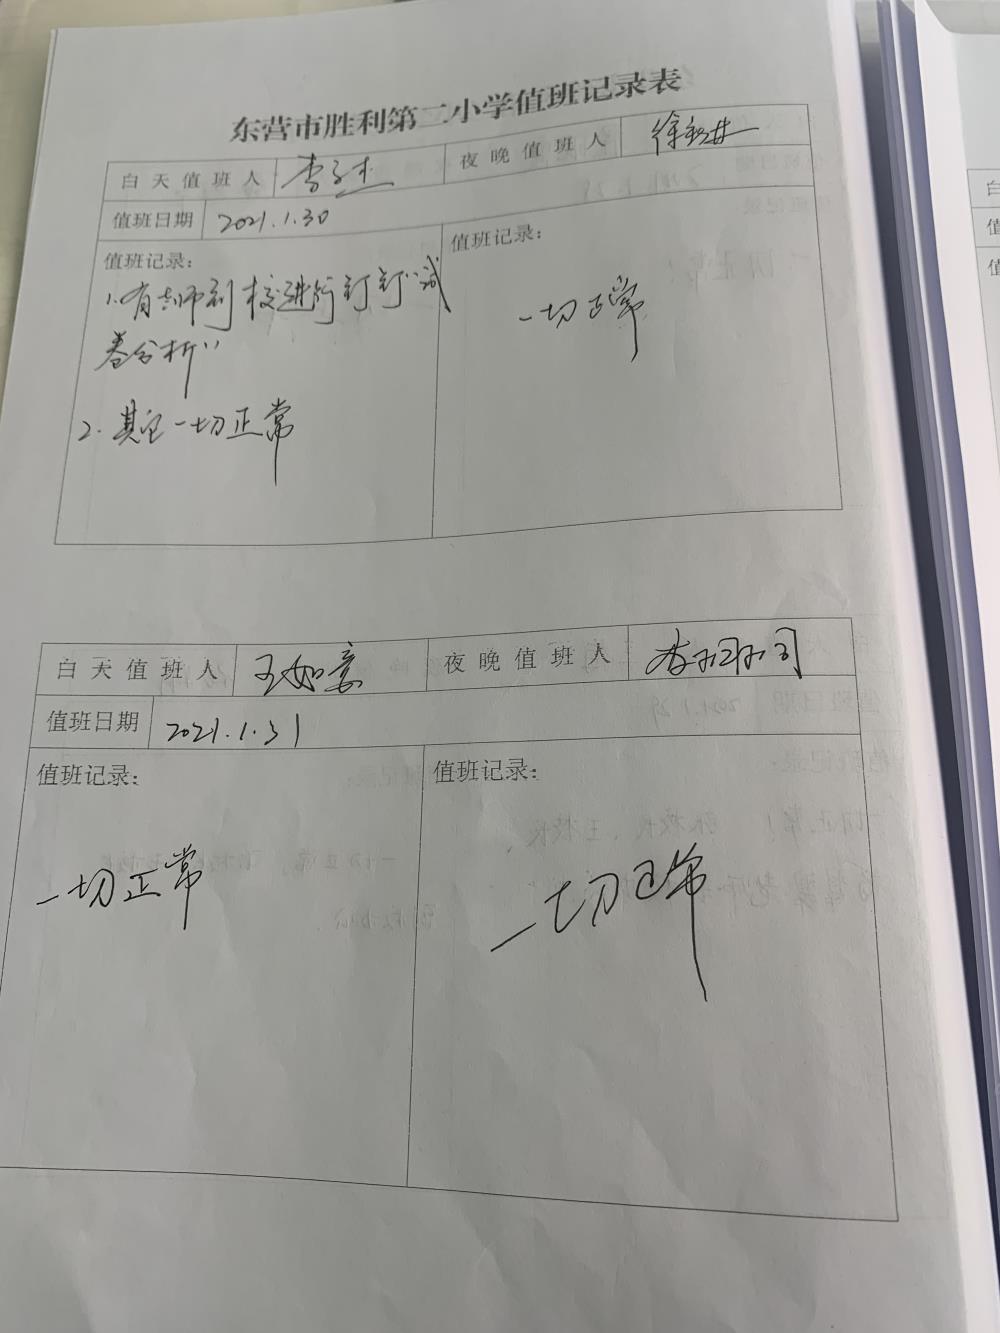 东营市胜利第二小学值班记录表
白天值班人 李子杰 夜晚值班人
值班日期 2021.1.30
值班记录:
1.有老师到校进行钉钉“试
卷分析”
2.其它一切正常
值班记录:
一切正常
白天值班人 王如意 夜晚值班人
值班日期 2021.1.31
值班记录:
一切正常
值班记录:
一切正常